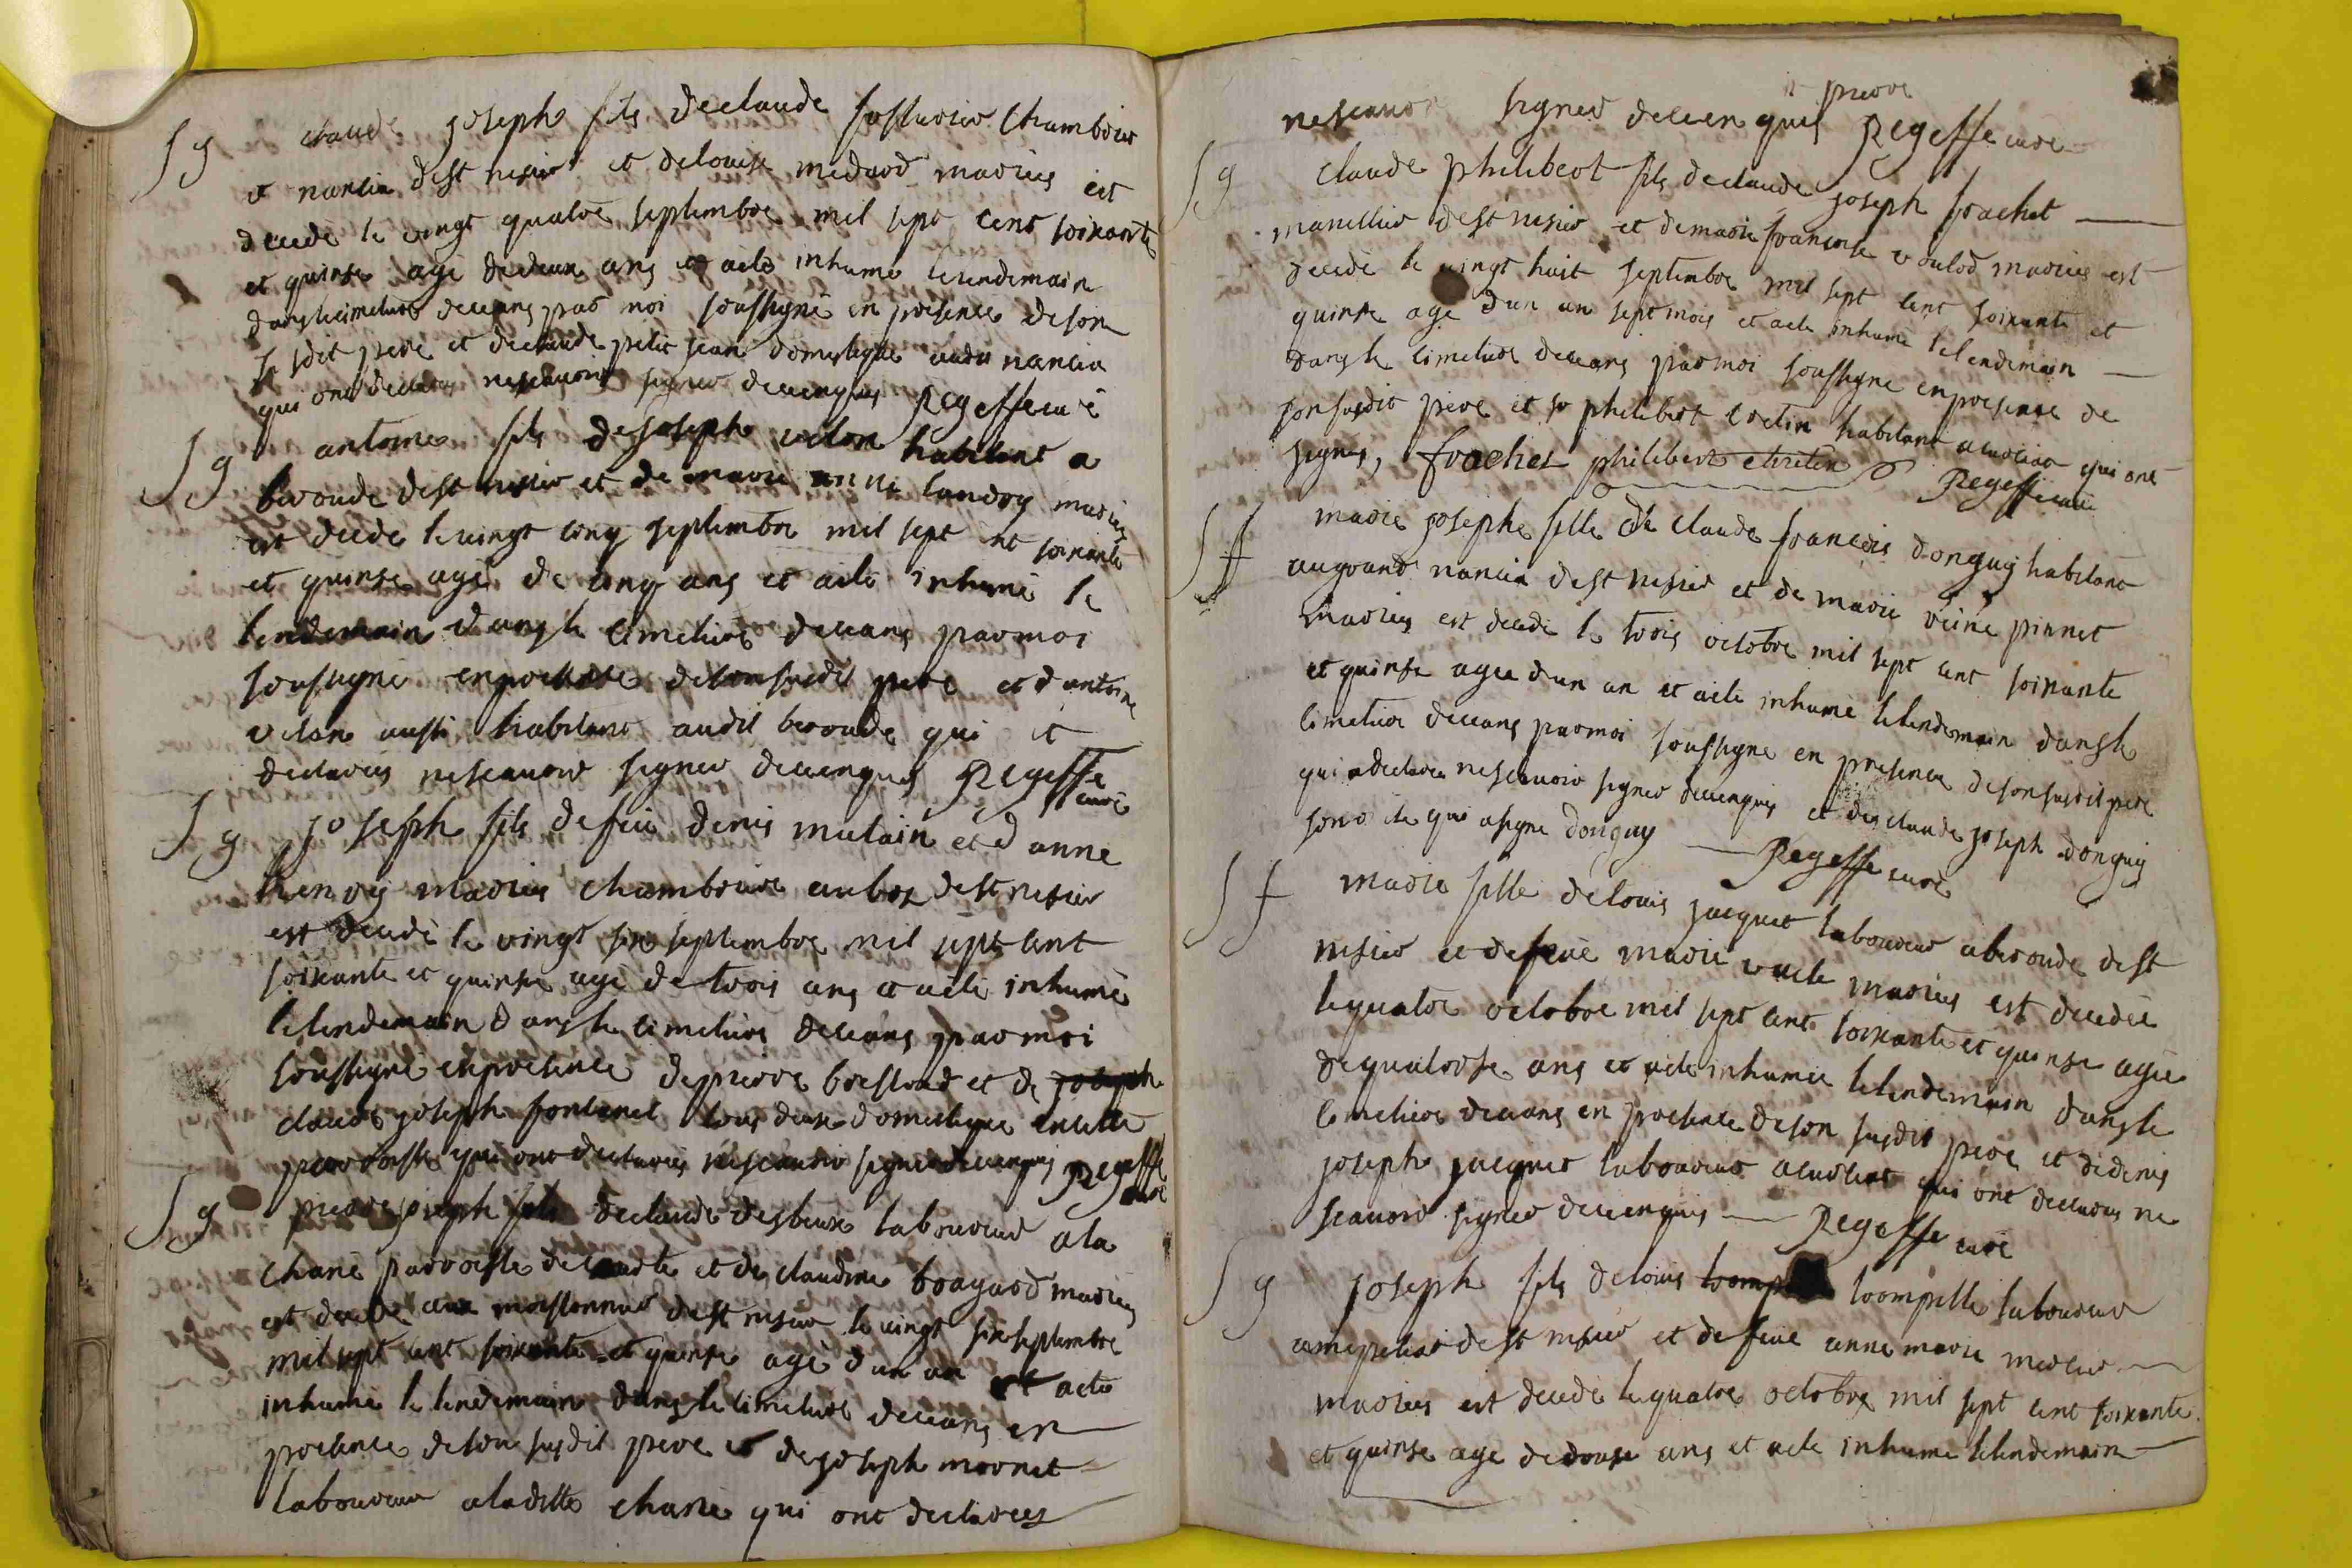 Sg claude joseph fils declaude chambrier
a nancia dest nisier et delouise medard mariés est
decedé le vingt quatre septembre mil sept cent soixante
et quinse agé dedeux ans et aété inhumé lelendemain
dans lecimetiere deceans par moi soussigné en presence deson
susdit pere et declaude petit jean domestique audit nancia
qui ont declarés nescauoir signer decenquis Regeffe curé
Sg antoine fils dejoseph velon habitant a
beronde dest nisier et de marie anne landry mariés
est decedé le vingt cinq septembre mil sept cent soixante
et quinse agé de cinq ans et aété inhumé le
lendemain dans le cimetiere deceans parmoi
soussigné enpresence desonsusdit pere et d'antoine
velon aussi habitant audit beronde qui ont
declarés nescauoir signer decenquis Regeffe
curé
Sg joseph fils defeu denis mulain et d anne
henry mariés chambriere aubos dest nisier
est decedé le vingt six septembre mil sept cent
soixante et quinse agé de trois ans et aété inhumé
lelendemain dans le cimetiere deceans parmoi
soussigné enpresence depierre bressoud et de joseph
claude joseph fontenet tous deux domestiques encette
parroisse qui ont declarés nescauoir signer decenquis Regeffe
curé
Sg pierre joseph fils declaude desbeux laboureur ala
chane parroisse de et de claudine bragard mariés
est decedé aux moissonnier dest nisier le vingt six septembre
mil sept cent soixante et quinse agé d'un an et aété
inhumé le lendemain dans le cimetiere deceans en
presence deson susdit pere et de joseph moonet
laboureur aladitte chane qui ont declarés
nescauoir signer decenquis Regeffe curé
Sg claude philibert fils declaude joseph frachet
manellier dest nisier et demarie francoise voulod mariés est
decedé le vingt huit septembre mil sept cent soixante et
quinse agé d'un an sept mois et aété inhumé lelendemain
dans le cimetiere deceans parmoi soussigné enpresence de
sonsusdit pere et philibert cretin habitant qui ont
signés, frachet philibert chretin Regeffe curé
Sf marie josephe fille de claude francois donguy habitant
augrand nancia dest nisier et de marie reine pinnet
mariés est decedé le trois octobre mil sept cent soixante
et quinse agée d'un an et aété inhumé lelendemain dans le
cimetiere deceans parmoi soussigné en presence desonsusdit pere
qui adeclaré nescauoir signer decenquis et de claude joseph donguy
qui asigné donguy Regeffe curé
Sf marie fille delouis jacquet laboureur aberonde dest
nisier et defeue marie mariés est decedée
lequatre octobre mil sept cent soixante et quinse agée
dequatorse ans et aété inhumée lelendemain dans le
cimetiere deceans en presence deson susdit pere et dedenis
joseph jacquet laboureur qui ont declarés ne
scauoir signer decenquis Regeffe curé
Sg joseph fils delouis tromp trompille laboureur
dest nisier et defeue anne marie mercier
mariés est decedé lequatre octobre mil sept cent soixante
et quinse agé dedouse ans et aété inhumé lelendemain